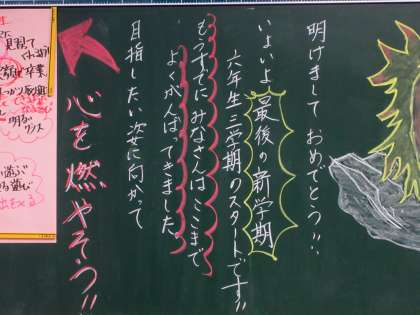 明けまして おめでとう!!
いよいよ 最後の新学期
六年生三学期のスタートです!!
もうすでに みなさんは ここまで、
よくがんばってきました。
目指したい姿に向かって
心を燃やそう!!
卒業
明るい
遊ぶ
遊び